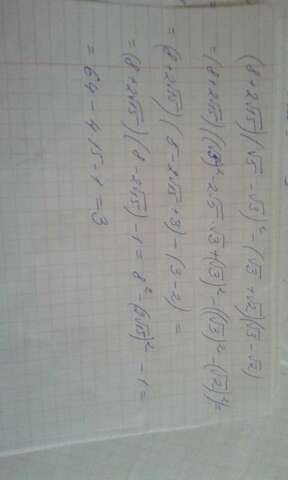 (8+2√15)(√5-√3)²-(√3+√2)(√3-√2)
=(8+2√15)((√5)²-2√5·√3+(√3)²-((√3)²-(√2)²)=
=(8+2√15)(5-2√15+3)-(3-2)=
=(8+2√15)(8-2√15)-1=8²-(2√15)²-1=
=64-4·15-1=3